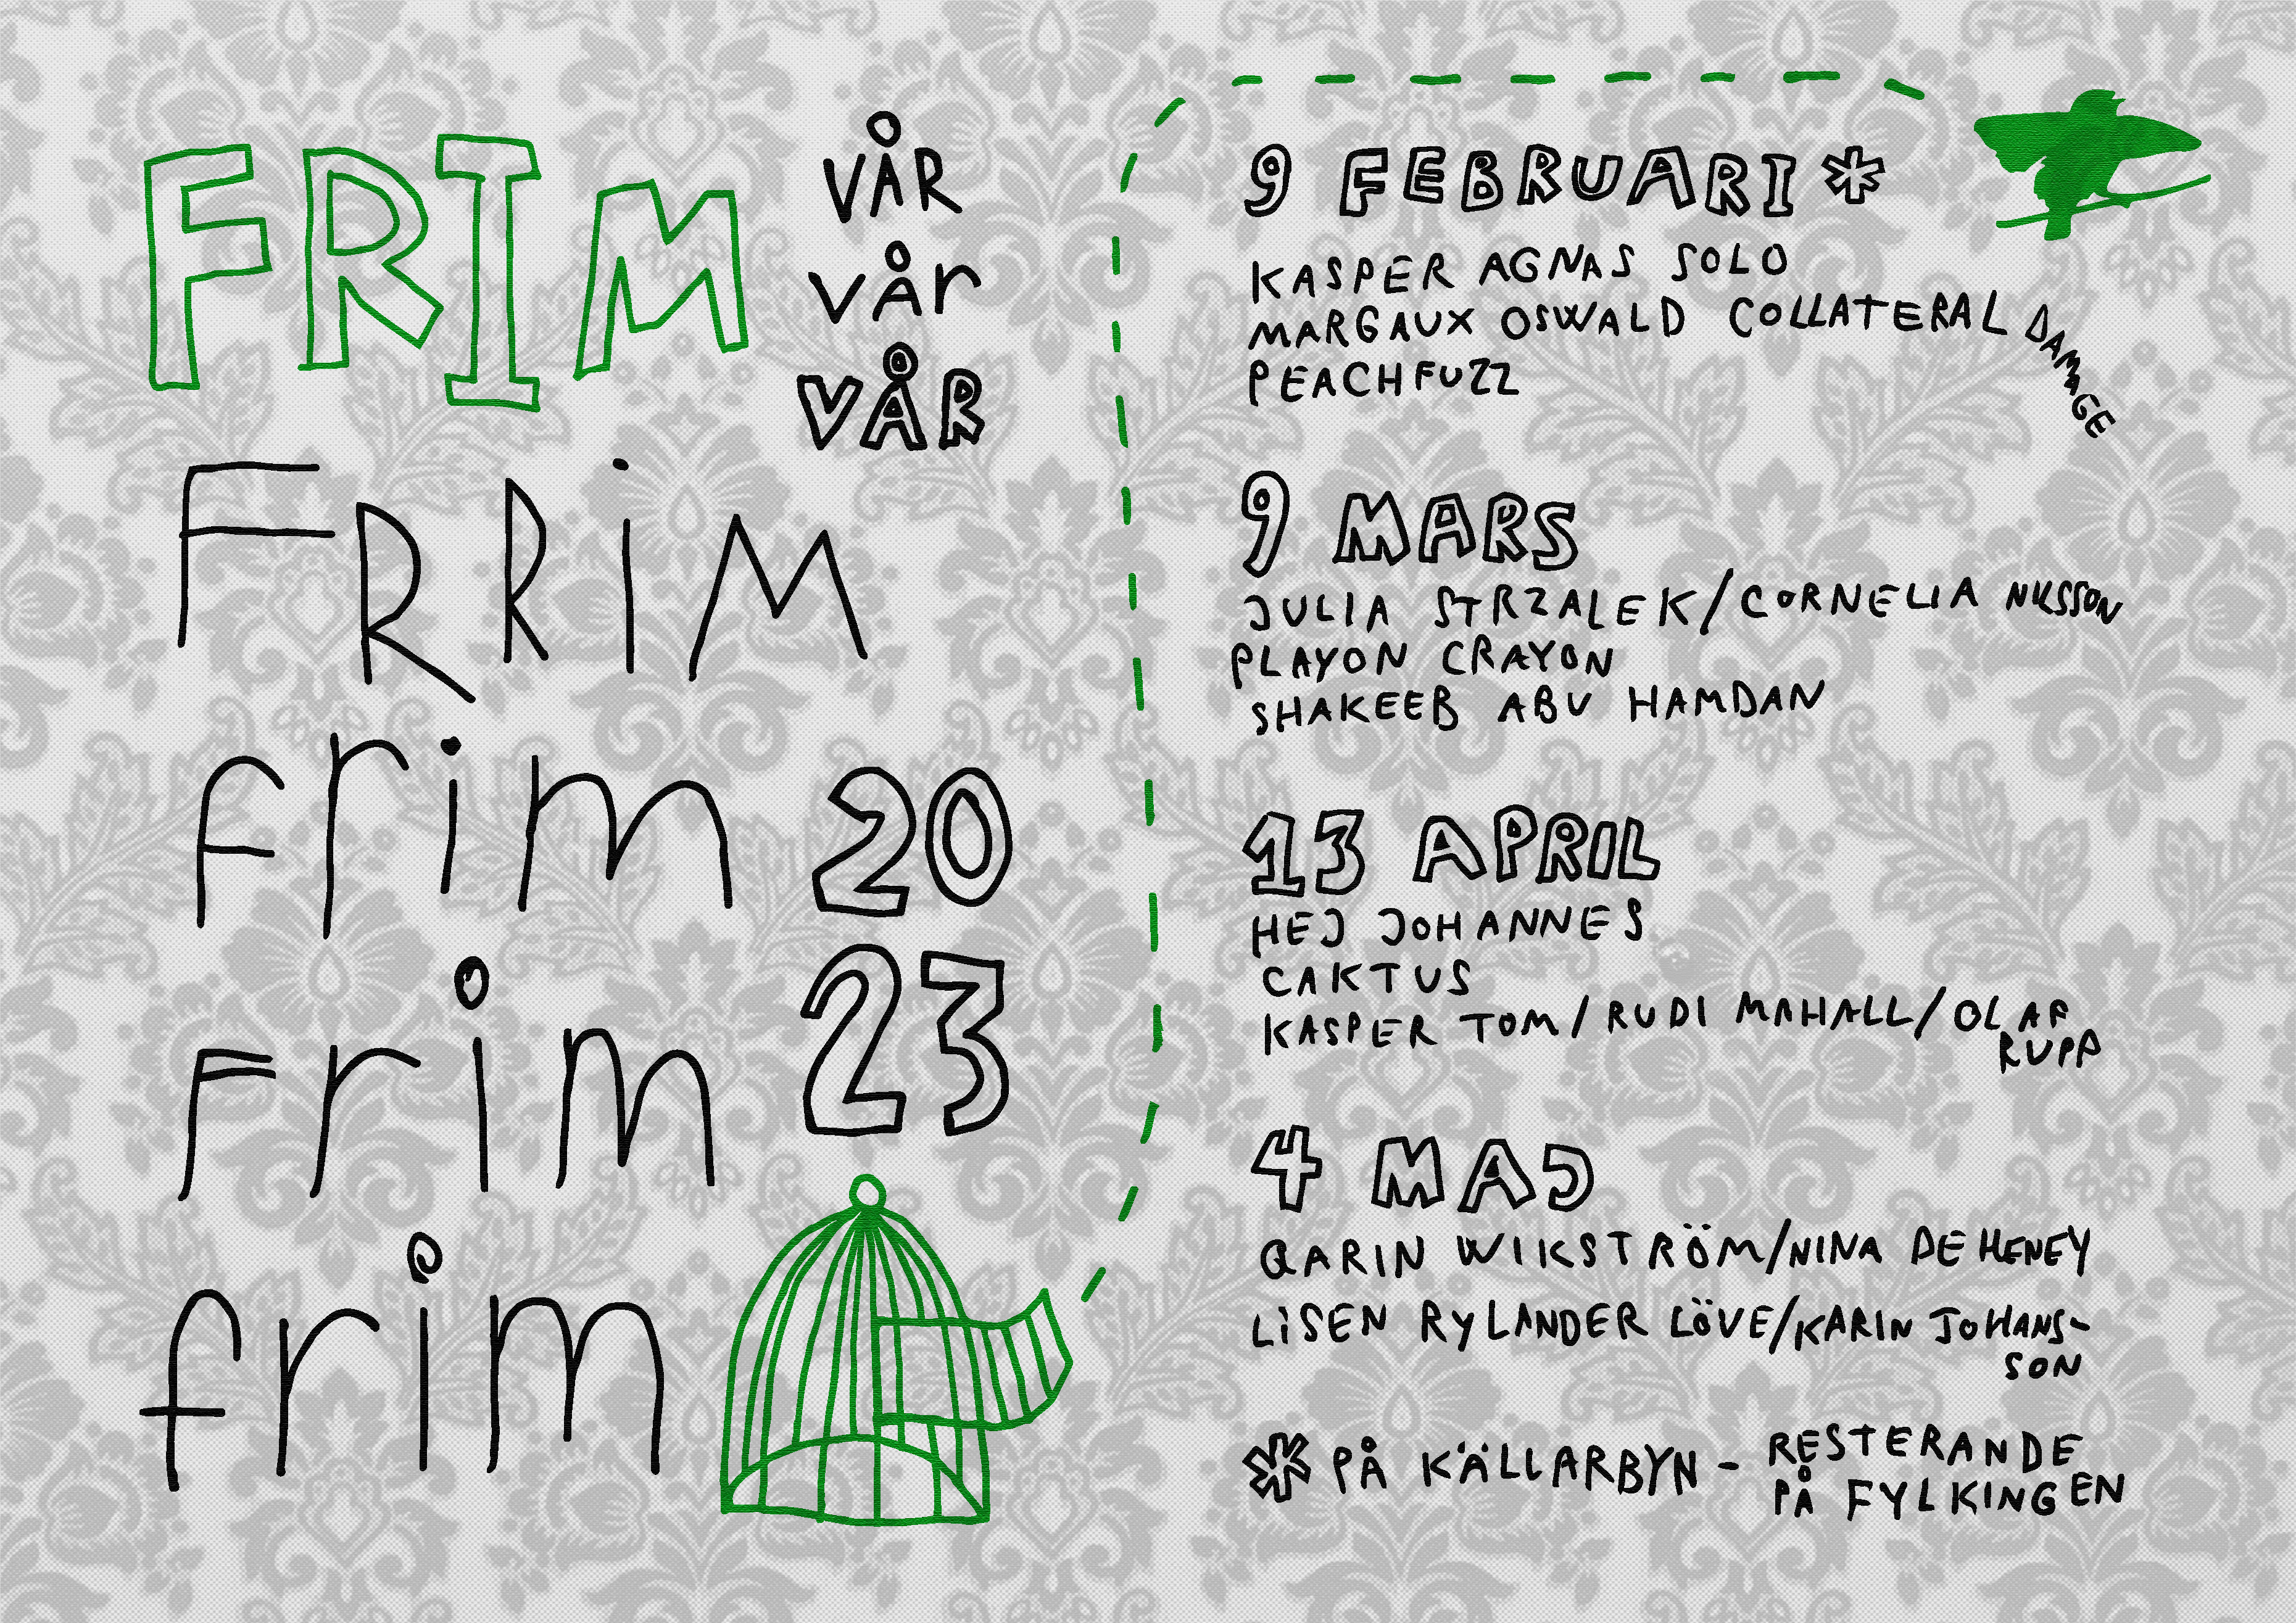 FRIM
VÅR
VÅr
VÅR
FRRiM
frim
20
Frim
23
frim
9 FEBRUARI *
KASPER AGNAS SOLO
MARGAUX OSWALD COLLATERAL DAMAGE
PEACHFUZZ
9 MARS
JULIA STRZALEK/CORNELIA NILSSON
PLAYON CRAYON
SHAKEEB ABU HAMDAN
13 APRIL
HEJ JOHANNES
CAKTUS
KASPER TOM/RUDI MAHALL/OLAF
RUPP
4 MAJ
QARIN WIKSTRÖM/NINA DE HENEY
LiSEN RYLANDER LÖVE/KARIN JOHANS-
SON
* PÅ KÄLLARBYN - RESTERANDE
PÅ FYLKINGEN